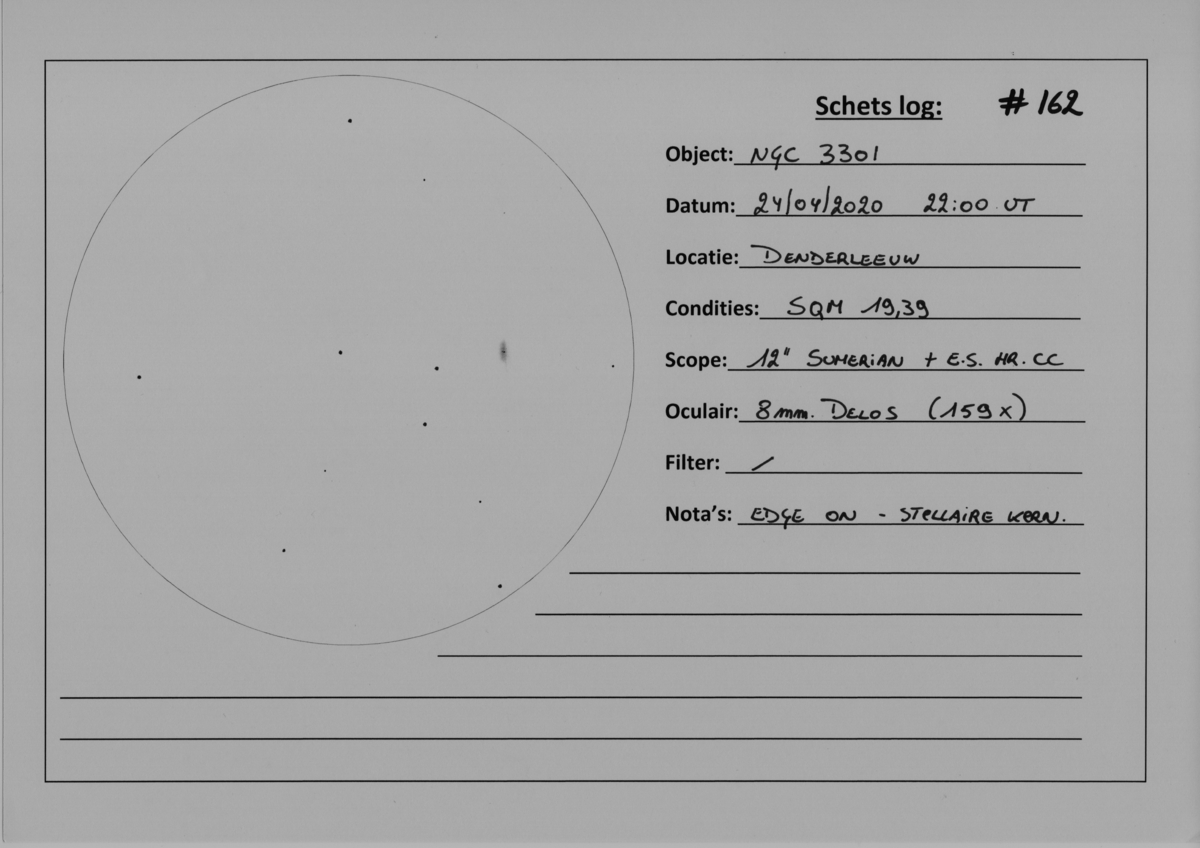 Schets log: # 162
Object: NGC 3301
Datum: 24/04/2020 22:00 UT
Locatie: DENDERLEEUW
Condities: SQM 19,39
Scope: 12" SUMERIAN + E.S. HR. CC
Oculair: 8mm. DELOS (159x)
Filter: /
Nota's: EDGE ON - STELLAIRE KERN.